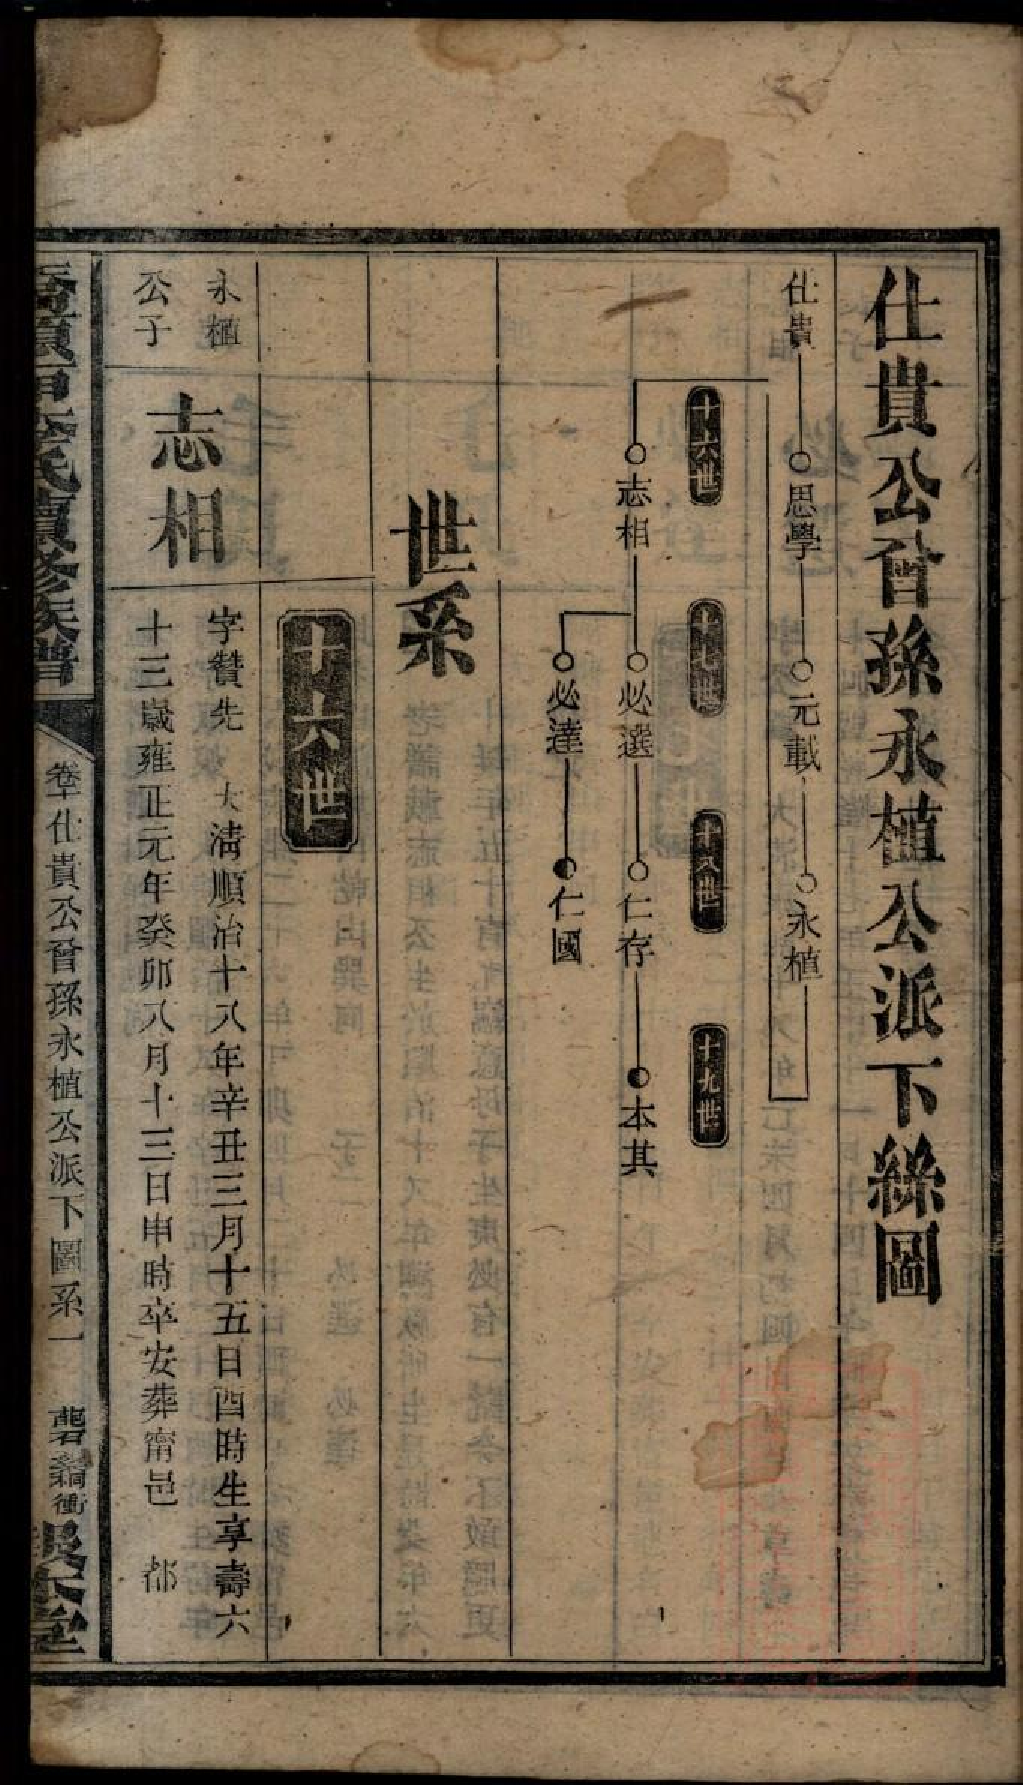 仕貴公曾孫永植公派下絲圖
仕貴
思學
元載
永植
十六世
十七世
十八世
十九世
志相
必選
仁存
本其
必達
仁國
世系
十六世
永植
公子
志相
字贊先 大淸順治十八年辛丑三月十五日酉時生享壽六
十三歲雍正元年癸卯八月十三日申時卒安葬甯邑 都
李氏續修族譜
卷 仕貴公曾孫永植公派下圖系一
衝
敦本堂